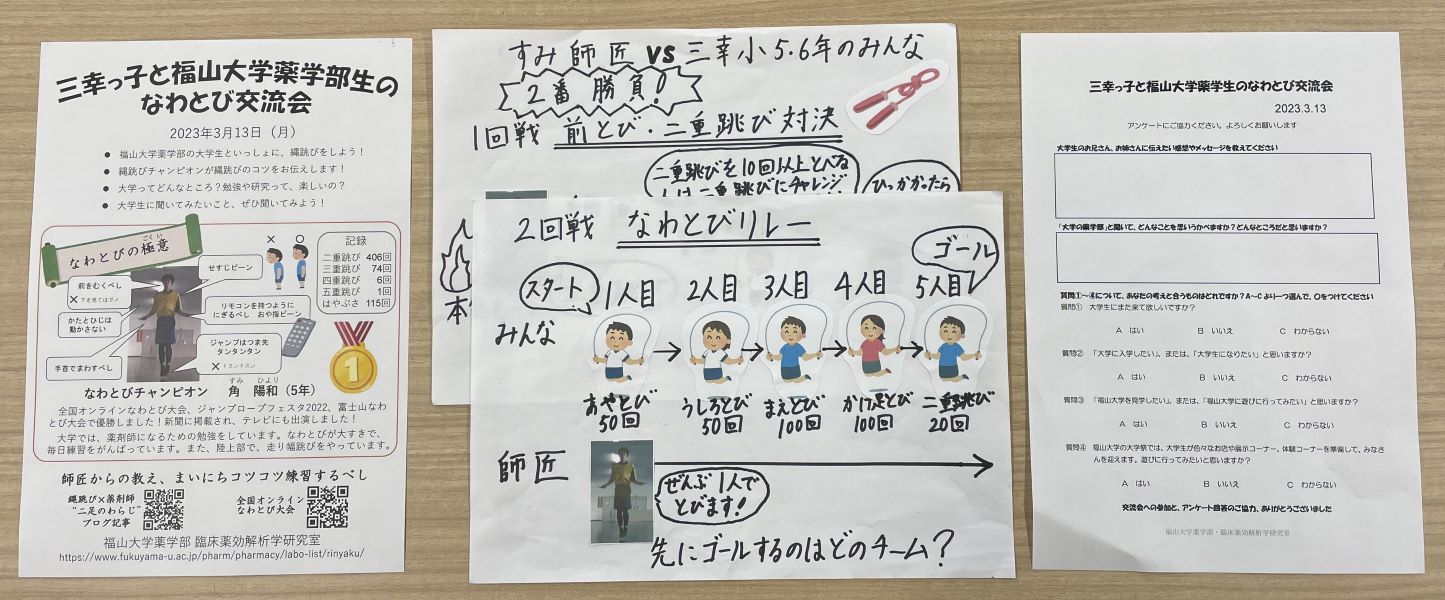 三幸っ子と福山大学薬学部生の
なわとび交流会
2023年3月13日（月）
● 福山大学薬学部の大学生といっしょに、縄跳びをしよう！
● 縄跳びチャンピオンが縄跳びのコツをお伝えします！
● 大学ってどんなところ？勉強や研究って、楽しいの？
● 大学生に聞いてみたいこと、ぜひ聞いてみよう！
なわとびの極意
ごくい
× ○
記録
二重跳び 406回
三重跳び 74回
四重跳び 6回
五重跳び 1回
はやぶさ 115回
せすじピーン
前をむくべし
× 下を見てはダメ
かたとひじは
動かさない
手首でまわすべし
リモコンを持つように
にぎるべし おや指ピーン
ジャンプはつま先
タンタンタン
× ドスンドスン
1
なわとびチャンピオン 角 陽和（5年）
すみ ひより
全国オンラインなわとび大会、ジャンプロープフェスタ2022、富士山なわ
とび大会で優勝しました！新聞に掲載され、テレビにも出演しました！
大学では、薬剤師になるための勉強をしています。なわとびが大すきで、
毎日練習をがんばっています。また、陸上部で、走り幅跳びをやっています。
師匠からの教え、まいにちコツコツ練習するべし
縄跳び×薬剤師
“二足のわらじ”
ブログ記事
全国オンライン
なわとび大会
福山大学薬学部 臨床薬効解析学研究室
https://www.fukuyama-u.ac.jp/pharm/pharmacy/labo-list/rinyaku/
すみ師匠 VS 三幸小5.6年のみんな
2番勝負！
1回戦 前とび・二重跳び対決
二重跳びを10回以上とべる
人は二重跳びにチャレンジ
ひっかかったら
本
2回戦 なわとびリレー
ゴール
スタート
1人目 2人目 3人目 4人目 5人目
みんな
あやとび
50回
うしろとび
50回
まえとび
100回
かけ足とび
100回
二重跳び
20回
師匠
ぜんぶ1人で
とびます！
先にゴールするのはどのチーム？
三幸っ子と福山大学薬学生のなわとび交流会
2023.3.13
アンケートにご協力ください。よろしくお願いします
大学生のお兄さん、お姉さんに伝えたい感想やメッセージを教えてください
「大学の薬学部」と聞いて、どんなことを思いうかべますか？どんなところだと思いますか？
質問①～④について、あなたの考えと合うものはどれですか？A～Cより一つ選んで、○をつけてください
質問① 大学生にまた来て欲しいですか？
A はい B いいえ C わからない
質問② 「大学に入学したい」、または、「大学生になりたい」と思いますか？
A はい B いいえ C わからない
質問③ 「福山大学を見学したい」、または、「福山大学に遊びに行ってみたい」と思いますか？
A はい B いいえ C わからない
質問④ 福山大学の大学祭では、大学生が色々なお店や展示コーナー、体験コーナーを準備して、みなさ
んを迎えます。遊びに行ってみたいと思いますか？
A はい B いいえ C わからない
交流会への参加と、アンケート回答のご協力、ありがとうございました
福山大学薬学部・臨床薬効解析学研究室